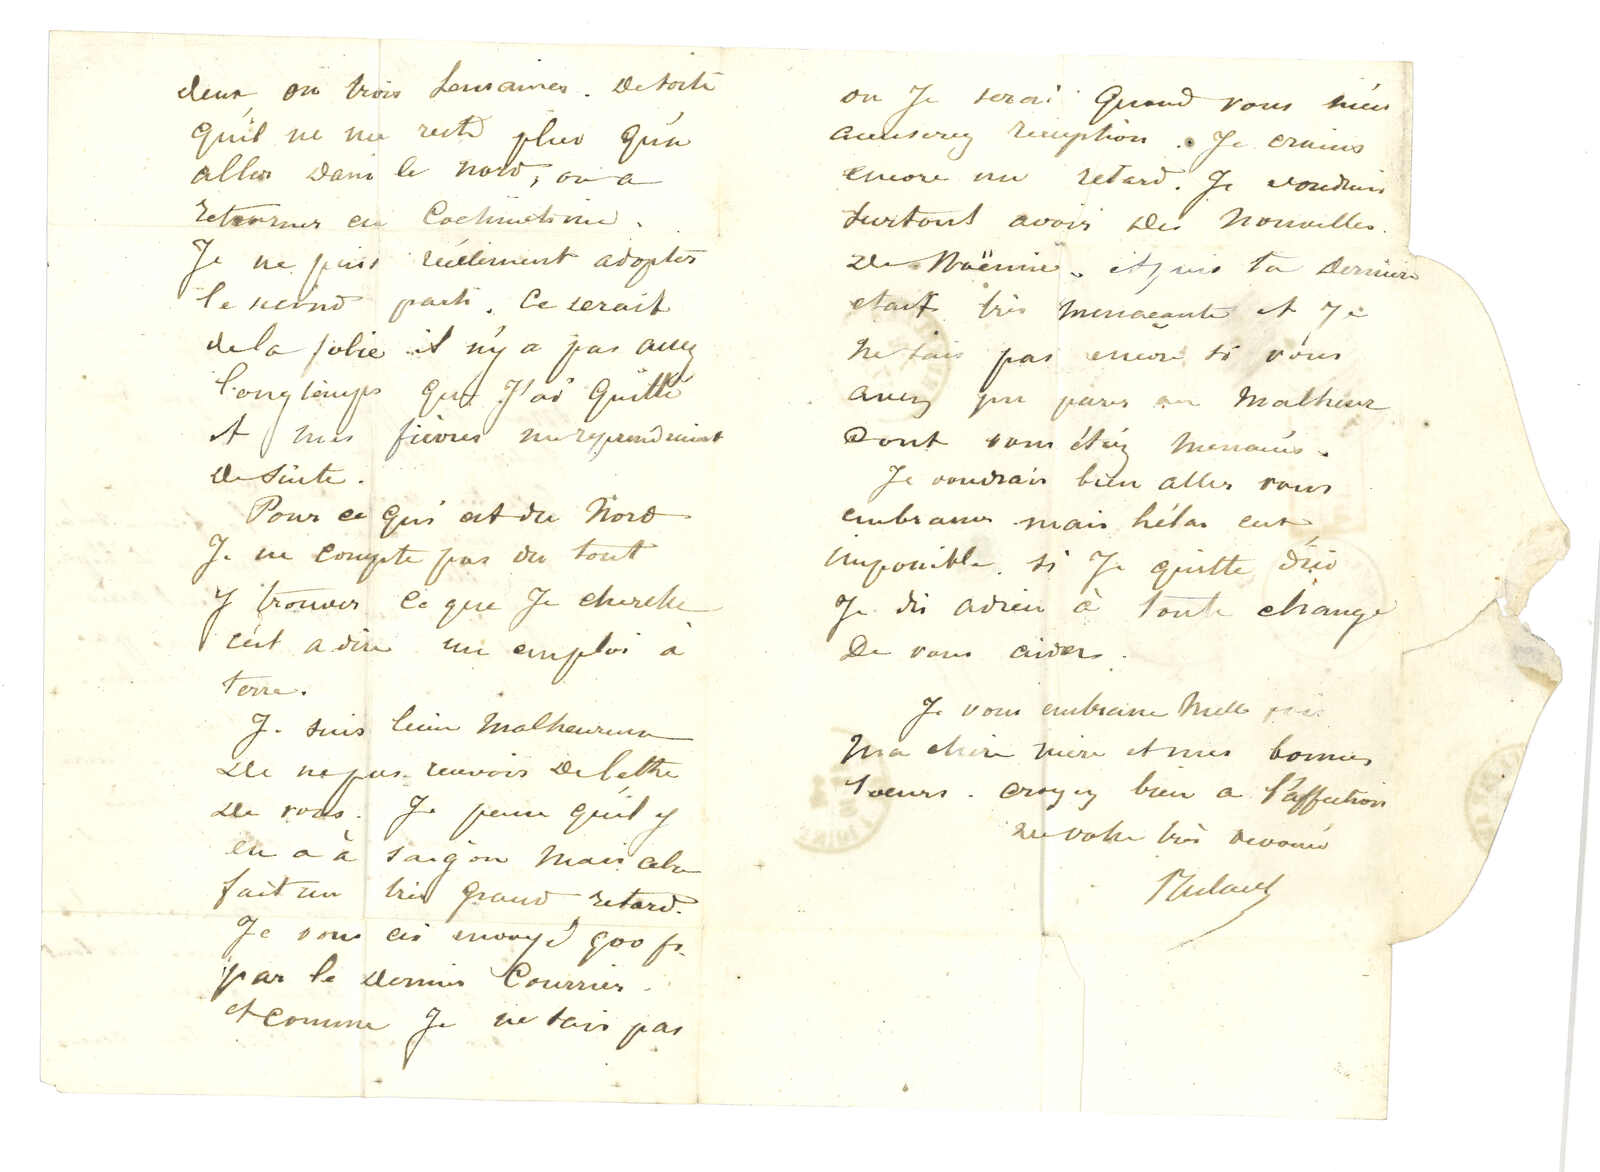 deux ou trois semaines. De sorte
qu'il ne me reste plus qu'a
aller dans le nord, ou a
retourner en Cochinchine.
Je ne puis réelement adopter
le second parti. Ce serait
de la folie il n'y a pas assez
longtemps que J'ai quitté
et mes fièvres me reprendraient
de suite.
Pour ce qui est du Nord
Je ne compte pas du tout
y trouver ce que Je cherche
c'est a dire un emploi à
terre.
Je suis bien malheureux
de ne pas recevoir de lettre
de vous. Je pense qu'il y
en a à Saïgon mais cela
fait un très grand retard.
Je vous ai envoyé 900 fr.
par le dernier Courrier.
et comme Je ne sais pas
ou Je serai quand vous m'en
accuserez reception. Je crains
encore un retard. Je voudrais
surtout avoir des nouvelles
de Noëmie. et puis ta dernière
etait très menaçante et Je
ne sais pas encore si vous
avez pu parer au malheur
dont vous étiez menacés.
Je voudrais bien aller vous
embrasser mais hélas c'est
impossible. si Je quitte d'ici
Je dis adieu à toute chance
de vous aider.
Je vous embrasse mille fois
ma chère mère et mes bonnes
soeurs. croyez bien a l'affection
de votre très devoué